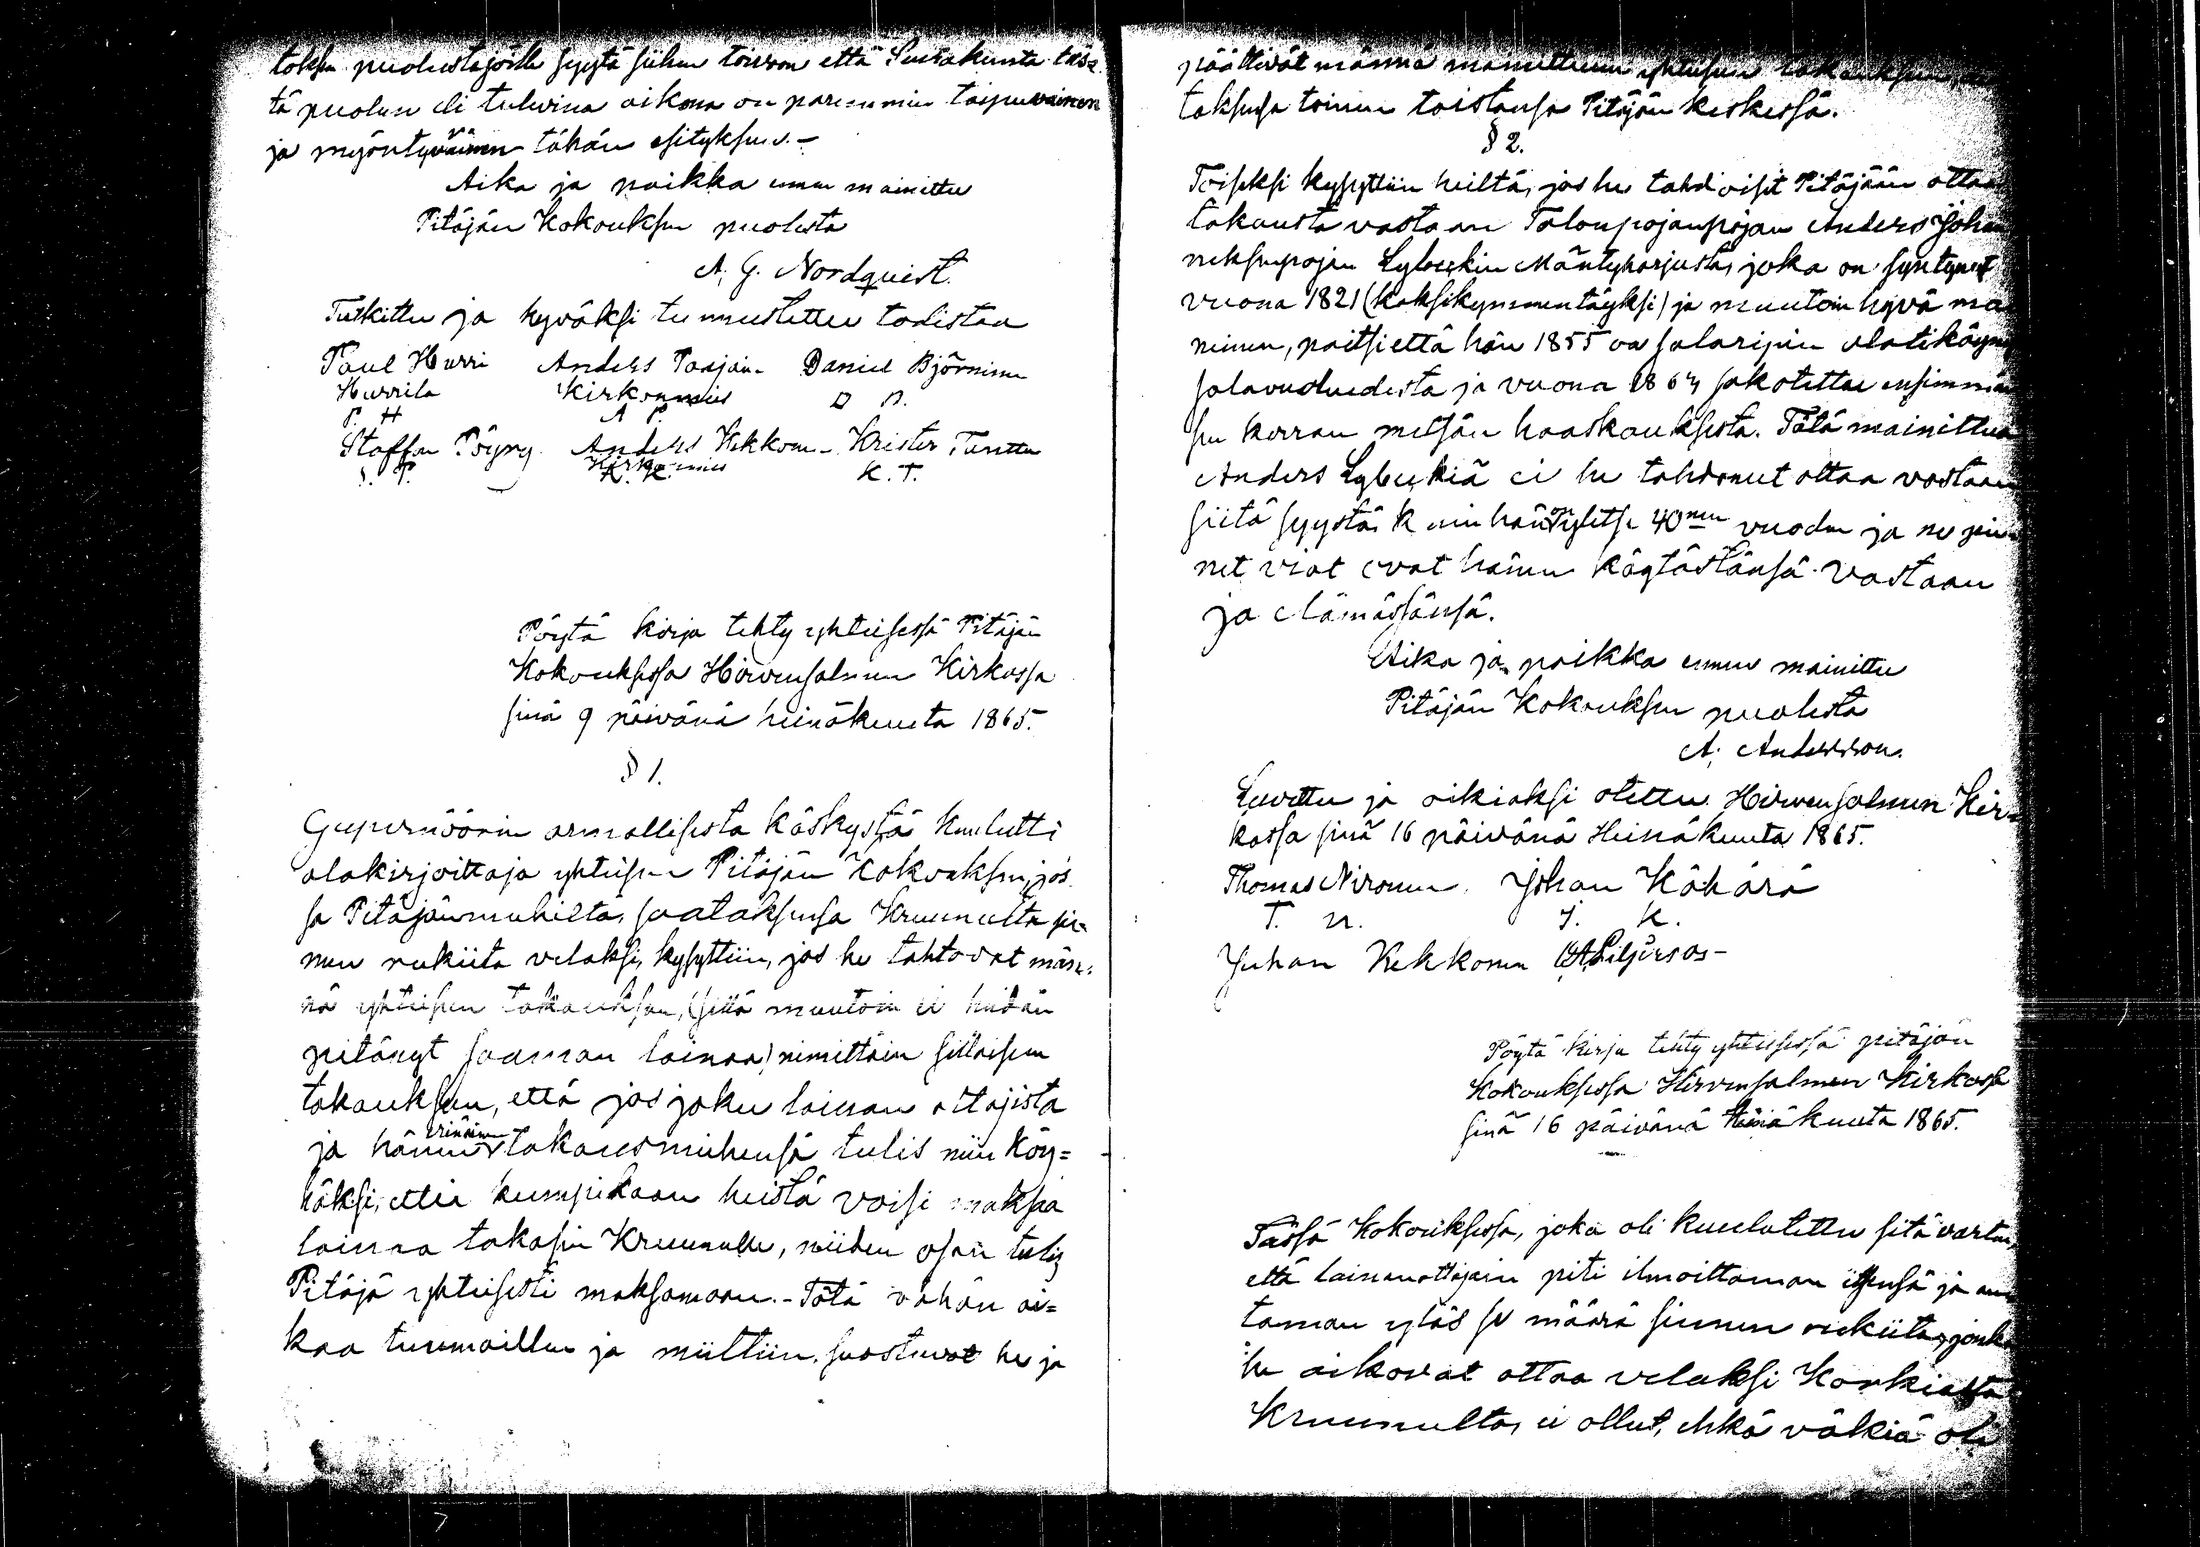 toksen puolustajoille syytä siihen toivoon että Seurakunta täs=
tä puoleen eli tulevina aikona on paremmin taipuvainen
ja myöntyväinen tähän esitykseen. -
Aika ja paikka ennen mainittu
Pitäjän Kokouksen puolesta
A. G. Nordquist.
Tutkittu ja hyväksi tunnustettu todistaa
Paul Hurri Anders Paajan- Daniel Björninen
Hurrila Kirkonmies D B.
P. H A P.
Staffan Pöyry Anders Kekkon- Krister Tanttu
S. P. Kirkonmies K. T.
K. K.
Pöytä kirja tehty yhteisessä Pitäjän
Kokouksessa Hirvensalmen Kirkossa
sinä 9 päivänä heinäkuuta 1865.
§ 1.
Gupernöörin armollisesta käskystä kuulutti
alakirjoittaja yhteisen Pitäjän Kokouksen, jos
sa Pitäjänmiehiltä, saataksensa Kruunulta sie=
men rukiita velaksi, kysyttiin, jos he tahtovat män=
nä yhteiseen takaukseen, (sillä muutoin ei heidän
pitänyt saaman lainaa) nimittäin sillaiseen
takaukseen, että jos joku lainan ottajista
ja hänen erinäinen takausmiehensä tulis niin köy=
häksi, ettei kumpikaan heistä voisi maksaa
lainaa takasin Kruunulle, niiden osan tulis
Pitäjä yhteisesti maksamaan. - Tätä vähän ai=
kaa tuumaillen ja miittiin, suostuvat he ja
päättivät männä mainittuun yhteiseen takaukseen,
taksensa toinen toistansa Pitäjän keskessä.
§ 2.
Toiseksi kysyttiin heiltä, jos he tahdoisit Pitäjään ottaa
takausta vastaan Talonpojanpojan Anders Johan
neksenpojan Lybeckin Mäntyharjusta, joka on syntynyt
vuona 1821 (kaksikymmentäyksi) ja muutoin hyvä mai
neinen, paitsi että hän 1855 on salaripin alatikäyny
salavuoteudesta ja vuona 1864 sakotettu ensimmäi
sen kerran metsän haaskauksesta. Tätä mainittua
Anders Lybeckiä ei he tahtonut ottaa vastaan
siitä syystä, k uin hän on ylitse 40nen vuoden ja ne
net viat ovat hänen käytöstänsä vastaan
ja elämässänsä.
Aika ja paikka ennen mainittu
Pitäjän Kokouksen puolesta
A. Andersson.
Luvettu ja oikiaksi otettu Hirvensalmen Kir=
kossa sinä 16 päivänä Heinäkuuta 1865.
Thomas Nironen. Johan Kähärä
T. N. J. K.
Juhan Kekkonen
Pöytä kirja tehty yhteisessä pitäjän
Kokouksessa Hirvensalmen Kirkossa
sinä 16 päivänä Heinäkuuta 1865.
Tässä Kokouksessa, joka oli kuulutettu sitä varten,
että lainanottajain piti ilmoittaman itsensä ja an
taman ylös se määrä siemen rukiita, jonka
he aikovat ottaa velaksi Korkialta
Kruunulta, ei ollut, ehkä väkiä oli